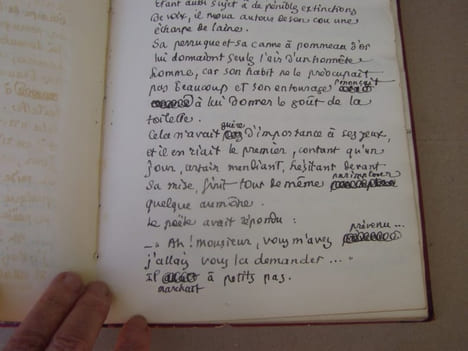 Étant aussi sujet à de pénibles extinctions
de voix, il noua autour de son cou une
écharpe de laine.
Sa perruque et sa canne à pommeau d'or
lui donnaient seuls l'air d'un honnête
homme, car son habit ne le préoccupait
pas beaucoup et son entourage
à lui donner le goût de la
toilette.
Cela n'avait guère d'importance à ses yeux,
et il en riait le premier, contant qu'un
jour, certain mendiant, hésitant devant
sa mise, finit tout de même par implorer
quelque aumône.
Le poète avait répondu :
_ " Ah ! monsieur, vous m'avez prévenu ...
j'allais vous la demander ... "
Il marchait à petits pas.